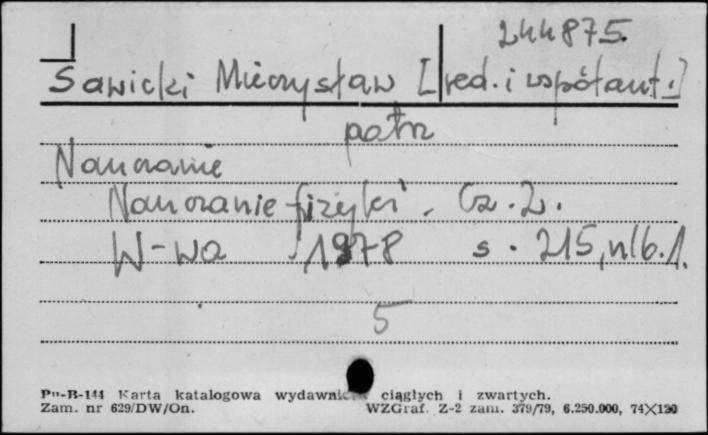 244875.
Sawicki Mieczysław [red. i współaut.]
patrz
Nauczanie
Nauczanie fizyki. Cz. 2.
W-wa 1978 s. 215, nlb. 1.
5
Pu-B-144 Karta katalogowa wydawnictw ciągłych i zwartych.
Zam. nr 629/DW/On. WZGraf. Z-2 zam. 379/79, 6.250.000, 74×120